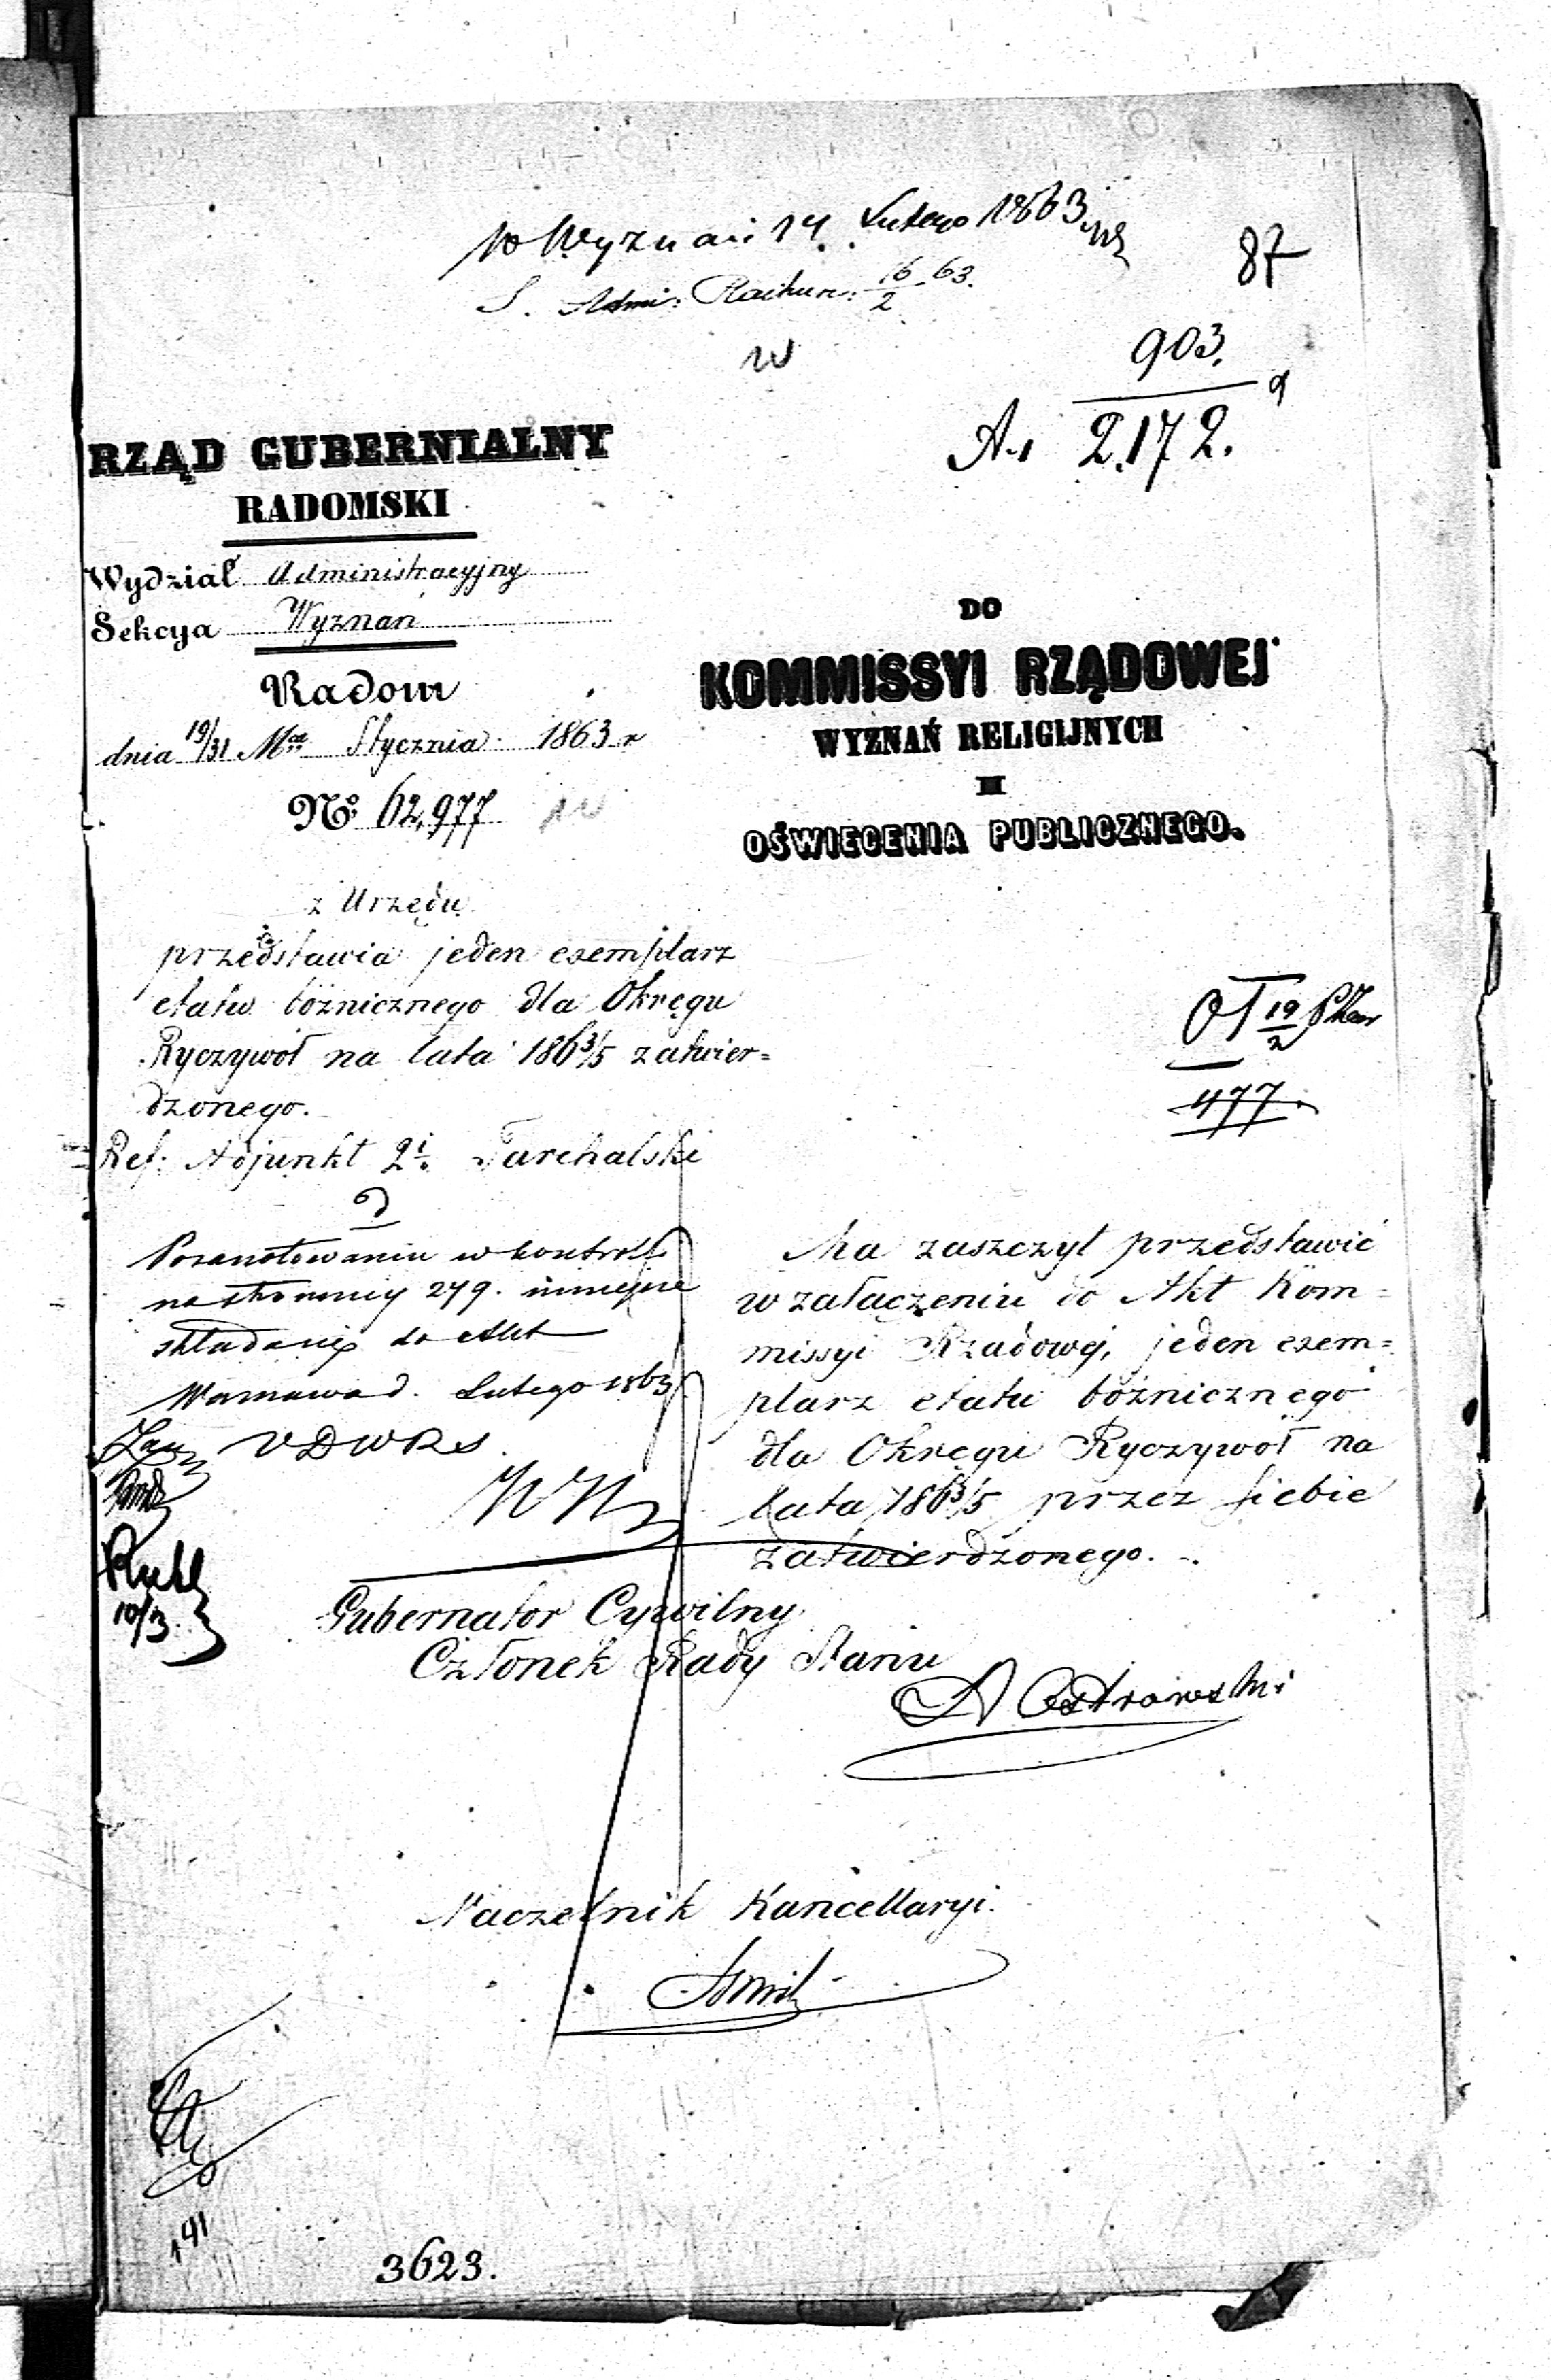 W Wyznań 14 Lutego 1863
S. Admi: Rachun: 16/2 63.
87
903.
A. 2172.
RZĄD GUBERNIALNY
RADOMSKI
Wydział Administracyjny
Sekcya Wyznań
Radom
dnia 19/31 Mca Stycznia 1863 r
No: 62,977
DO
KOMMISSYI RZĄDOWEJ
WYZNAŃ RELIGIJNYCH
I
OŚWIECENIA PUBLICZNEGO.
z Urzędu
przedstawia jeden exemplarz
etatu bóżnicznego dla Okręgu
Ryczywół na lata 1863/5 zatwier=
dzonego.
Ref: Adjunkt 2i. Tarchalski
19/2
477.
Pozanotowaniu w kontrolli
na stronnicy 279. niniejsze
składa się do Akt
Warszawa d. Lutego 1863
VDWRS.
10/3
Ma zaszczyt przedstawić
w załączeniu do Akt Kom=
missyi Rządowej, jeden exem=
plarz etatu bóżnicznego
dla Okręgu Ryczywół na
lata 1863/5 przez siebie
zatwierdzonego.
Gubernator Cywilny
Członek Rady Stanu
Ostrowski
Naczelnik Kancellaryi.
141
3623.